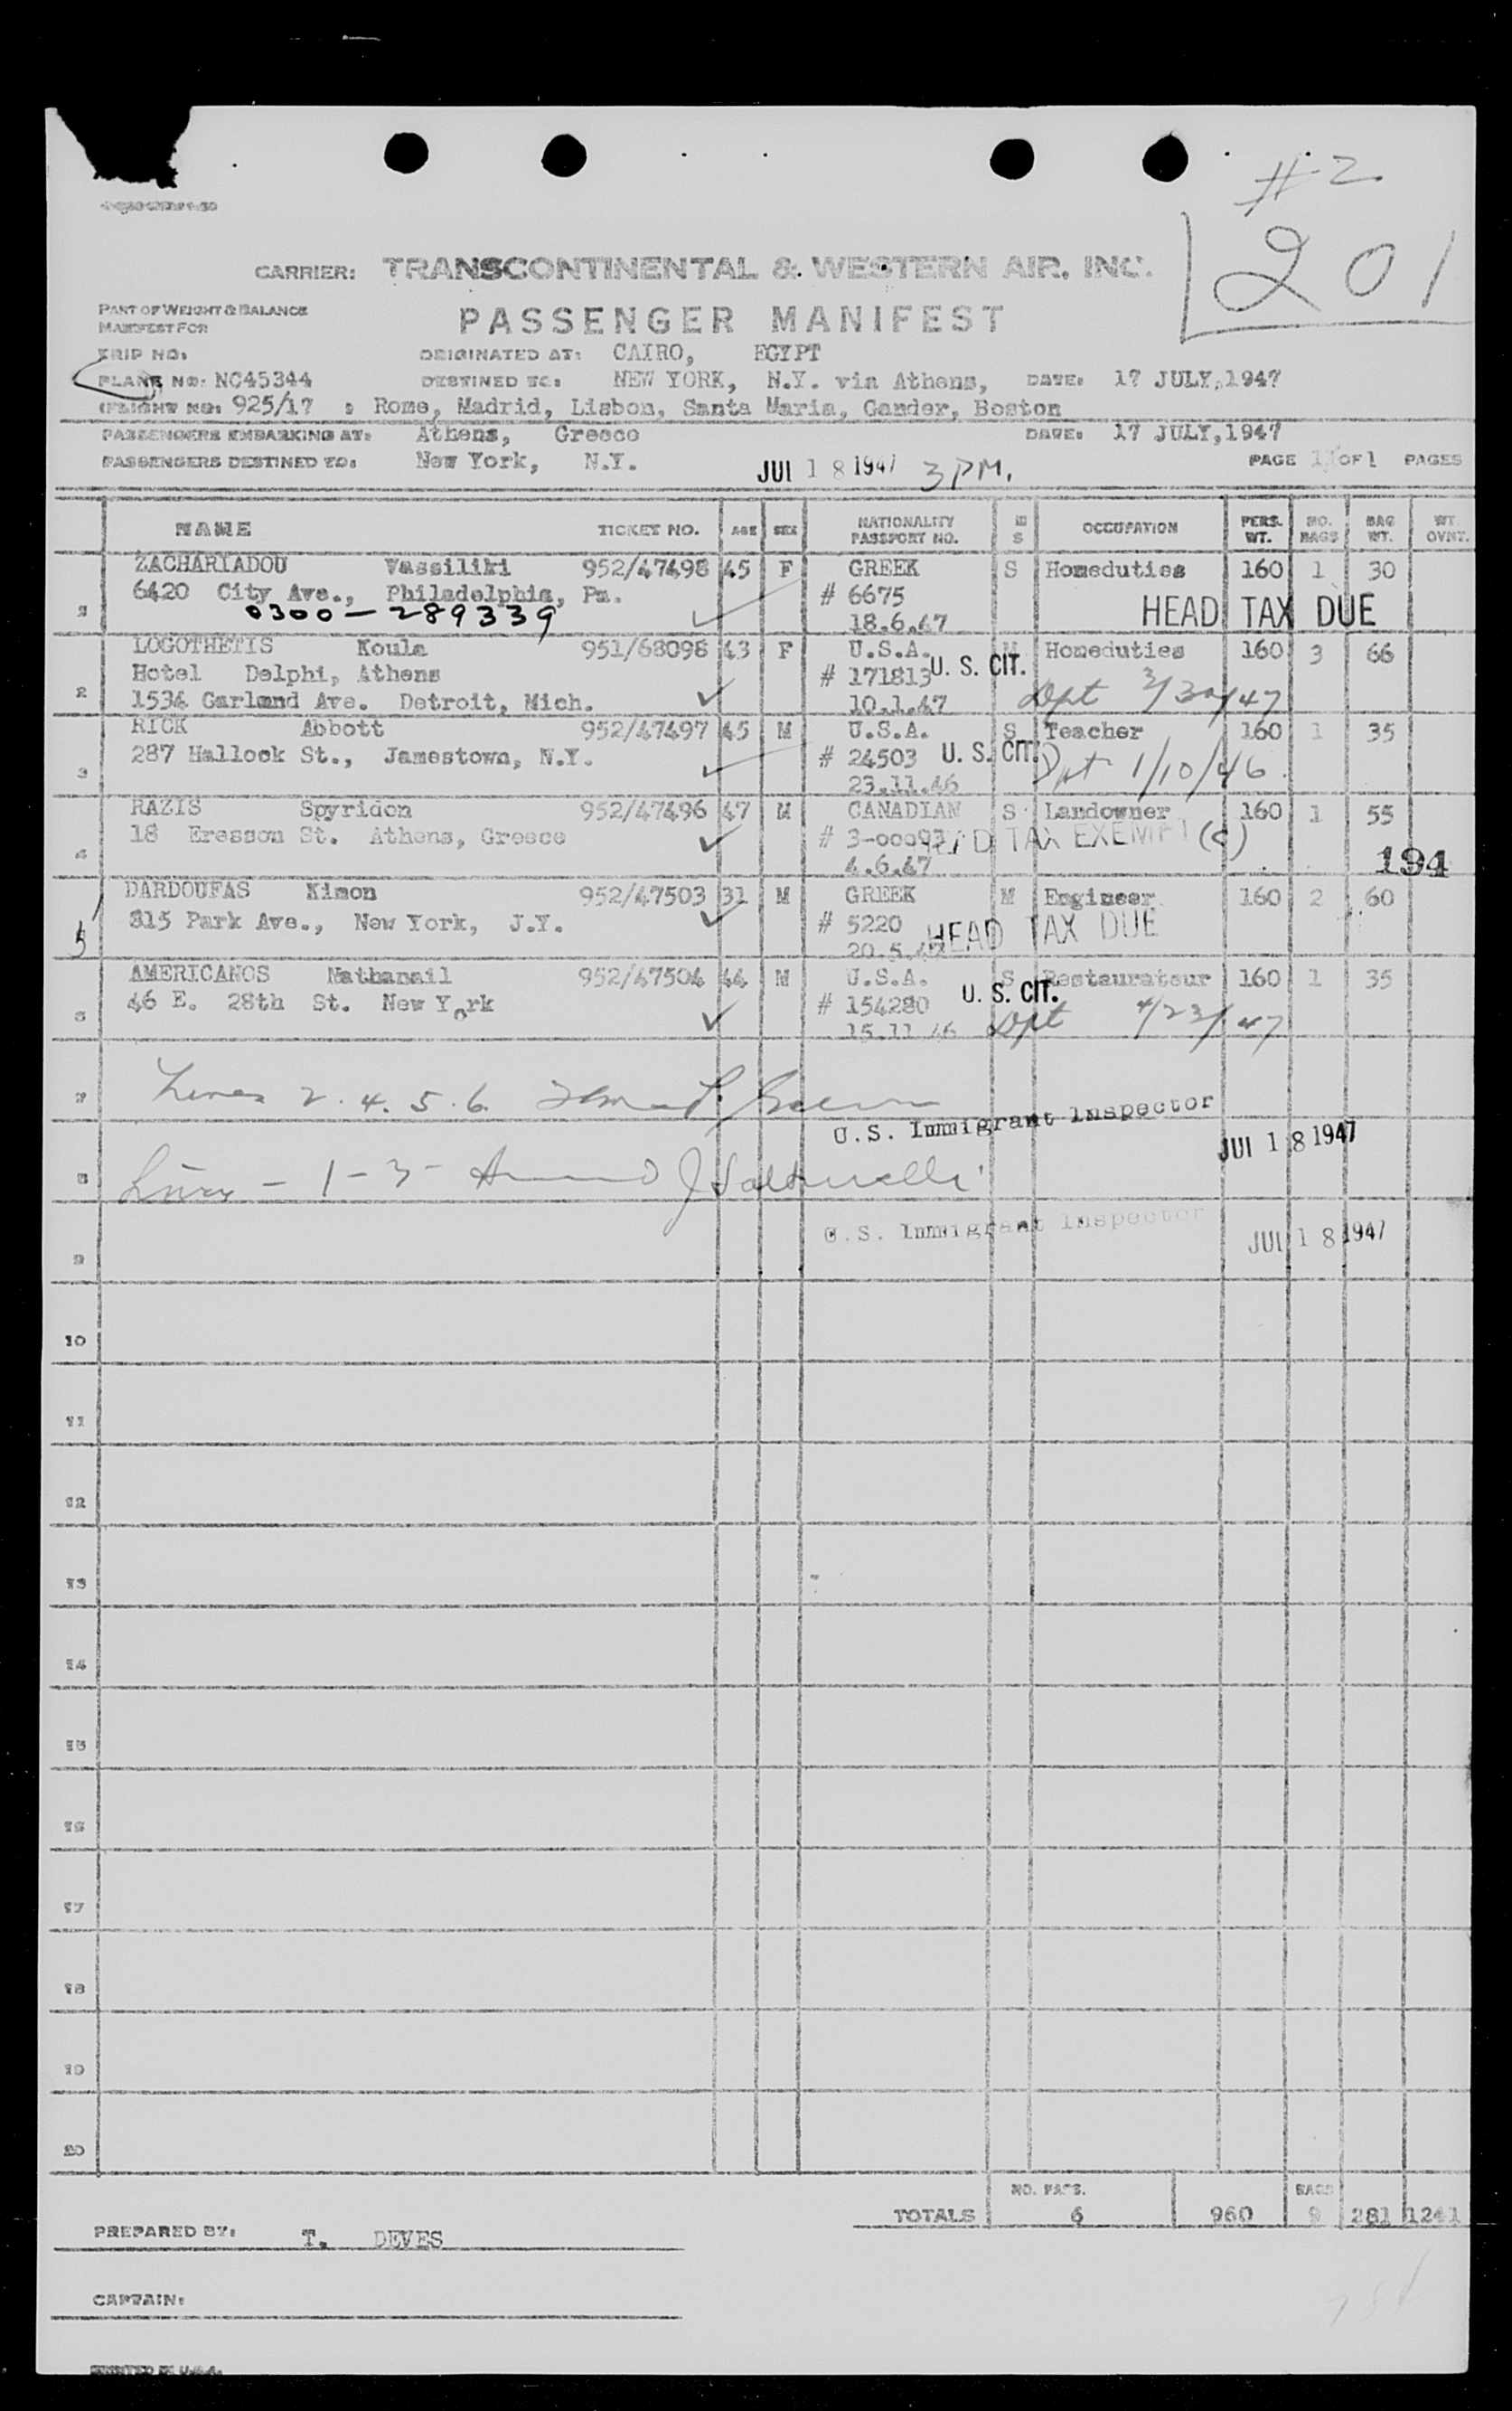 #2
201
CARRIER: TRANSCONTINENTAL & WESTERN AIR, INC.
PART OF WEIGHT & BALANCE
MANIFEST FOR
PASSENGER MANIFEST
TRIP NO:
ORIGINATED AT: CAIRO, EGYPT
PLANE NO: NC45344
DESTINED TO: NEW YORK, N.Y. via Athens, DATE: 17 JULY,1947
FLIGHT NO: 925/17 : Rome, Madrid, Lisbon, Santa Maria, Gander, Boston
PASSENGERS EMBARKING AT: Athens, Greece DATE: 17 JULY,1947
PASSENGERS DESTINED TO: New York, N.Y. PAGE 1 OF 1 PAGES
JUL 18 1947 3 PM.
NAME TICKET NO. AGE SEX NATIONALITY PASSPORT NO. M S OCCUPATION PERS. WT. NO. BAGS BAG WT. WT. OVNT.
ZACHARIADOU Vassiliki 952/47498 45 F GREEK S Homeduties 160 1 30
6420 City Ave., Philadelphia, Pa. # 6675 HEAD TAX DUE
1 0300-289339 18.6.47
LOGOTHETIS Koula 951/68098 43 F U.S.A. M Homeduties 160 3 66
Hotel Delphi, Athens # 171813 U. S. CIT.
2 1534 Garland Ave. Detroit, Mich. 10.1.47 Dpt 3/30/47
RICK Abbott 952/47497 45 M U.S.A. S Teacher 160 1 35
287 Hallock St., Jamestown, N.Y. # 24503 U. S. CIT. Dpt 1/10/46
3 23.11.46
RAZIS Spyridon 952/47496 47 M CANADIAN S Landowner 160 1 55
18 Eresson St. Athens, Greece # 3-00093 HEAD TAX EXEMPT (c)
4 4.6.47 194
DARDOUFAS Kimon 952/47503 31 M GREEK M Engineer 160 2 60
315 Park Ave., New York, J.Y. # 5220 HEAD TAX DUE
5 20.5.47
AMERICANOS Nathanail 952/47504 44 M U.S.A. S Restaurateur 160 1 35
46 E. 28th St. New York # 154280 U. S. CIT.
6 15.11.46 Dpt 4/23/47
7 Lines 2. 4. 5. 6.
U.S. Immigrant Inspector JUL 18 1947
8 Lines - 1-3-
U.S. Immigrant Inspector JUL 18 1947
9
10
11
12
13
14
15
16
17
18
19
20
NO. PASS. BAGS
TOTALS 6 960 9 281 1241
PREPARED BY: T. DEVES
CAPTAIN:
PRINTED IN U.S.A.